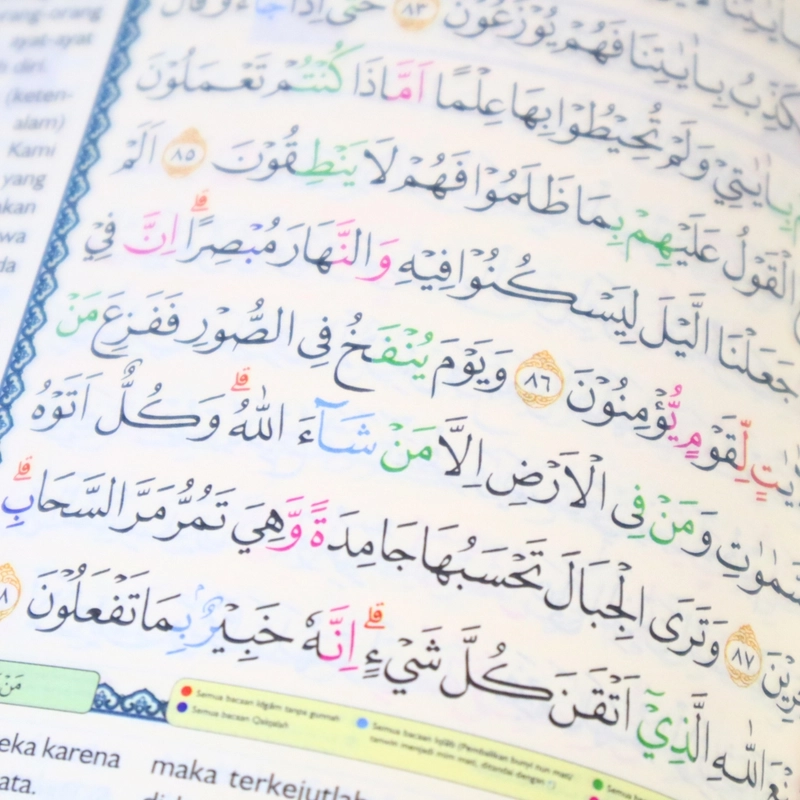 orang-orang
ayat-ayat
diri.
(keten-
alam)
Kami
yang
فَهُمْ يُوْزَعُوْنَ ٨٣ حَتّٰىٓ اِذَا جَاۤءُوْ قَالَ
بِاٰيٰتِيْ وَلَمْ تُحِيْطُوْا بِهَا عِلْمًا اَمَّاذَا كُنْتُمْ تَعْمَلُوْنَ
الْقَوْلُ عَلَيْهِمْ بِمَا ظَلَمُوْا فَهُمْ لَا يَنْطِقُوْنَ ٨٥ اَلَمْ
جَعَلْنَا الَّيْلَ لِيَسْكُنُوْا فِيْهِ وَالنَّهَارَ مُبْصِرًاۗ اِنَّ فِيْ
لِّقَوْمٍ يُّؤْمِنُوْنَ ٨٦ وَيَوْمَ يُنْفَخُ فِى الصُّوْرِ فَفَزِعَ مَنْ
وَمَنْ فِى الْاَرْضِ اِلَّا مَنْ شَاۤءَ اللّٰهُۗ وَكُلٌّ اَتَوْهُ
٨٧ وَتَرَى الْجِبَالَ تَحْسَبُهَا جَامِدَةً وَّهِيَ تَمُرُّ مَرَّ السَّحَابِۗ
اللّٰهِ الَّذِيْٓ اَتْقَنَ كُلَّ شَيْءٍۗ اِنَّهٗ خَبِيْرٌۢ بِمَا تَفْعَلُوْنَ
Semua bacaan Idgām tanpa gunnah
Semua bacaan Qalqalah
Semua bacaan Iqlāb (Pembalikan bunyi nun mati/
tanwin menjadi mim mati, ditandai dengan
karena
maka terkejutlah